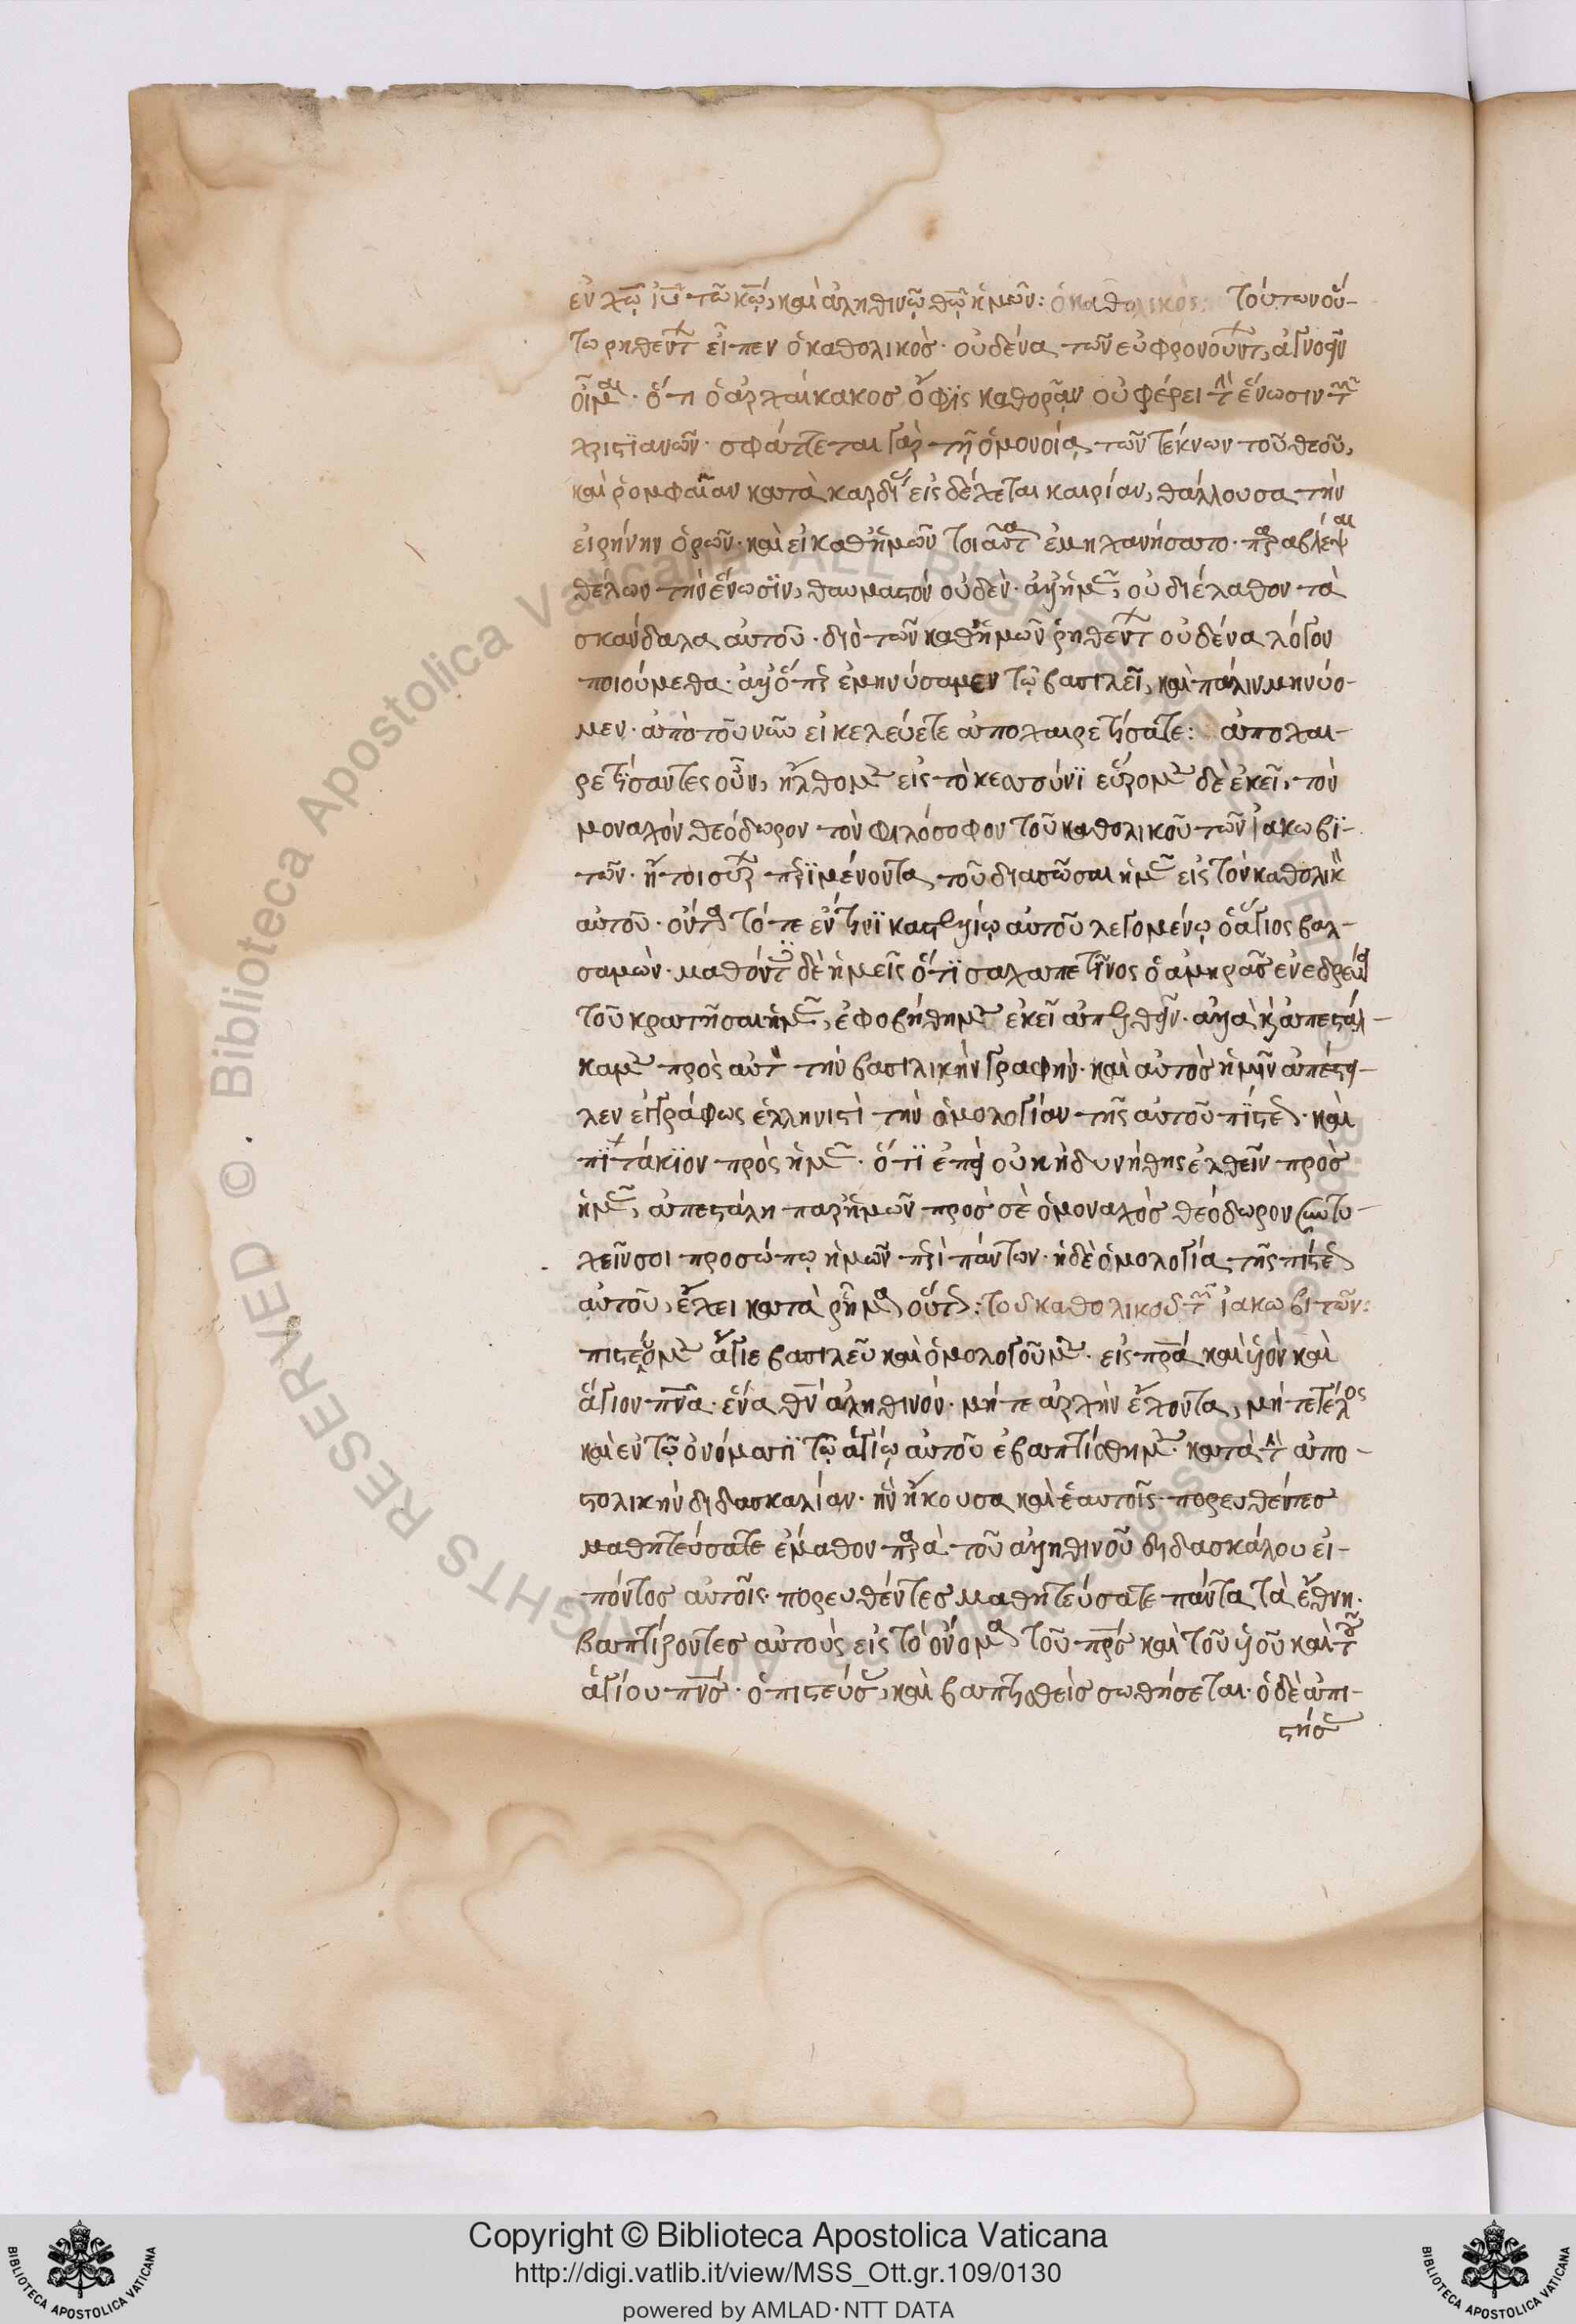 ἐν χω ιυ τῶ κω, καὶ ἀληθινῶ θω ἡμῶν: ὁ καθολικός: Τούτων οὕ-
τω ρηθέντ εἶπεν ὁ καθολικὸσ· οὐδένα τῶν εὐφρονούντ, ἀγνοεῖν
οἶμαι· ὅτι ὁ ἀρχαίκακοσ ὄφϊς καθορᾶν οὐ φέρει τὴν ἕνωσιν τῶν
χριστϊανῶν· σφάττεται γὰρ τῇ ὁμονοίᾳ τῶν τέκνων τοῦ θεοῦ,
καὶ ῥομφαίαν κατὰ καρδί εἰσδέχεται καιρίαν, θάλλουσα τὴν
εἰρήνην ὁρῶν· καὶ εἰ καθ' ἡμῶν τοιαῦτα ἐμηχανήσατο· παραβλέψαι
θέλων τὴν ἕνωσϊν, θαυμαστόν οὐδὲν· ἀλλ' ἡμᾶς, οὐ διέλαθον τὰ
σκάνδαλα αὐτοῦ· διὸ τῶν καθ' ἡμῶν ῥηθέντ οὐδένα λόγον
ποιούμεθα· ἀλλ' ὅπερ ἐμηνύσαμεν τῷ βασιλεῖ, καὶ πάλιν μηνύο-
μεν· ἀπὸ τοῦ νῦν εἰ κελεύετε ἀποχαιρετήσατε: ἀποχαι-
ρετήσαντες οὖν, ἤλθομεν εἰς τὸ κεσσύνϊ εὕρομεν δὲ ἐκεῖ, τὸν
μοναχόν θεόδωρον τὸν φιλόσοφον τοῦ καθολικοῦ τῶν ϊακωβϊ-
τῶν· ἤτοι σύρων περϊμένοντα τοῦ διασῶσαι ἡμᾶς εἰς τὸν καθολικὸν
αὐτοῦ· ὄντα τότε ἐν τινϊ καστελλίῳ αὐτοῦ λεγομένῳ ὁ ἅγιος βαλ-
σαμών· μαθόντες δὲ ἡμεῖς ὅτϊ σαχαπετῖνος ὁ ἀμηρᾶσ ἐνεδρεύει
τοῦ κρατῆσαι ἡμᾶς, ἐφοβήθημεν ἐκεῖ ἀπελθεῖν· ἀλλὰ καὶ ἀπεστάλ-
καμεν πρὸς αὐτὸν τὴν βασιλικὴν γραφήν· καὶ αὐτὸσ ἡμῖν ἀπέστει-
λεν ἐγγράφως ἑλληνιστὶ τὴν ὁμολογίαν τῆς αὐτοῦ πίστεως· καὶ
πϊτάκϊον πρὸς ἡμᾶς· ὅτϊ ἐπεὶ οὐκ ἠδυνήθης ἐλθεῖν πρὸσ
ἡμᾶς, ἀπεστάλη παρ' ἡμῶν πρὸσ σὲ ὁ μοναχὸσ θεόδωρον συντυ-
χεῖν σοι προσώπῳ ἡμῶν περὶ πάντων· ἡ δὲ ὁμολογία τῆς πίστεως
αὐτοῦ, ἔχει κατὰ ῥῆμα οὕτως: τοῦ καθολικοῦ τῶν ϊακωβιτῶν:
πιστεύομεν ἅγιε βασιλεῦ καὶ ὁμολογοῦμεν· εἰς πρα καὶ υἱὸν καὶ
ἅγιον πνα· ἕνα θν ἀληθινόν· μήτε ἀρχὴν ἔχοντα, μήτε τέλος
καὶ ἐν τῷ ὀνόματϊ τῷ ἁγίῳ αὐτοῦ ἐβαπτίσθημεν· κατὰ τὴν ἀπο-
στολικὴν διδασκαλίαν· ἣν ἤκουσα καὶ ἑαυτοῖς πορευθέντεσ
μαθητεύσατε ἐμαθον παρὰ τοῦ ἀληθινοῦ διδασκάλου εἰ-
πόντοσ αὐτοῖς· πορευθέντεσ μαθητεύσατε πάντα τὰ ἔθνη·
βαπτίζοντεσ αὐτοὺς εἰς τὸ ὄνομα τοῦ πρσ καὶ τοῦ υἱοῦ καὶ τοῦ
ἁγίου πνσ· ὁ πιστεύσας, καὶ βαπτισθεὶσ σωθήσεται· ὁ δὲ ἀπι-
στήσας
Copyright © Biblioteca Apostolica Vaticana
http://digi.vatlib.it/view/MSS_Ott.gr.109/0130
powered by AMLAD·NTT DATA
BIBLIOTECA APOSTOLICA VATICANA
BIBLIOTECA APOSTOLICA VATICANA
© . Biblioteca Apostolica Vaticana ALL RIGHTS RESERVED